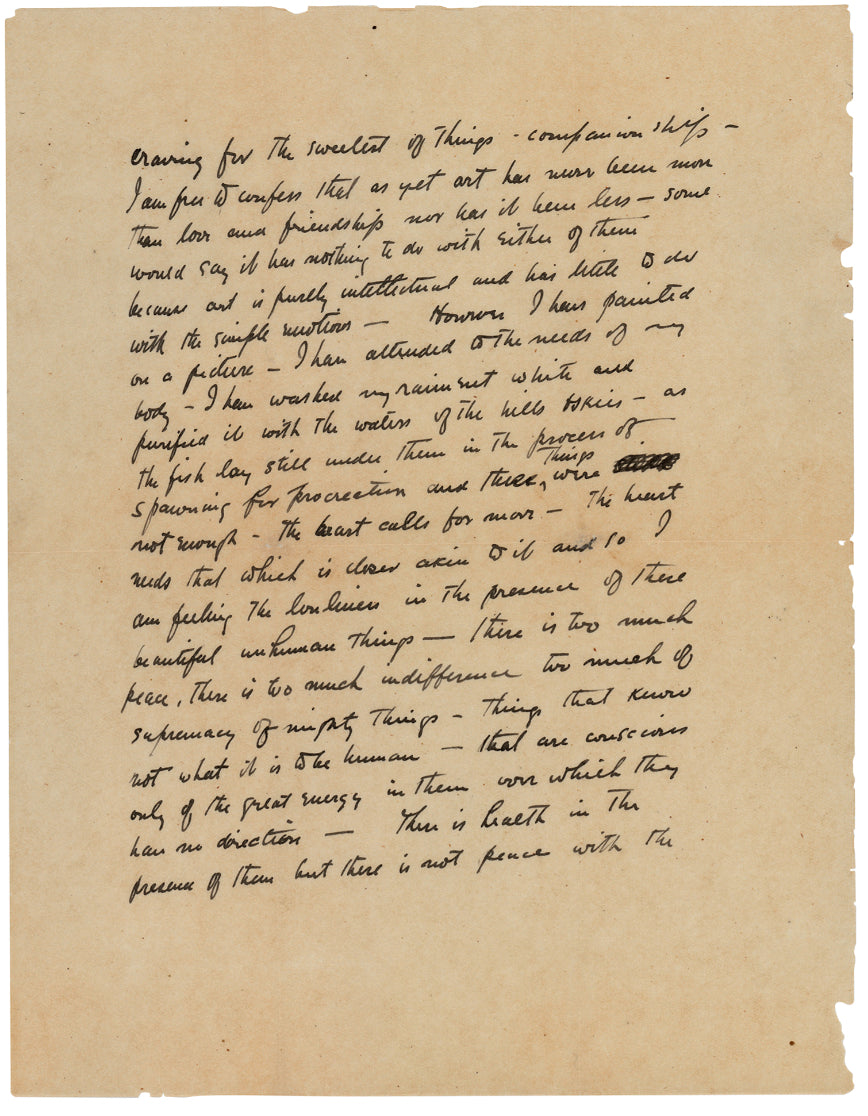 craving for the sweetest of things - companionship -
I am free to confess that as yet art has never been more
than love and friendship nor has it been less - some
would say it has nothing to do with either of them
because art is purely intellectual and has little to do
with the simple emotions - However I have painted
on a picture - I have attended to the needs of my
body - I have washed my raiment white and
purified it with the waters of the hills & skies - as
the fish lay still under them in the process of
spawning for procreation and these things were
not enough - the heart calls for more - The heart
needs that which is closer akin to it and so I
am feeling the lonliness in the presence of these
beautiful unhuman things - there is too much
peace, there is too much indifference too much of
supremacy of mighty things - things that know
not what it is to be human - that are conscious
only of the great energy in them over which they
have no direction - There is health in the
presence of them but there is not peace with the